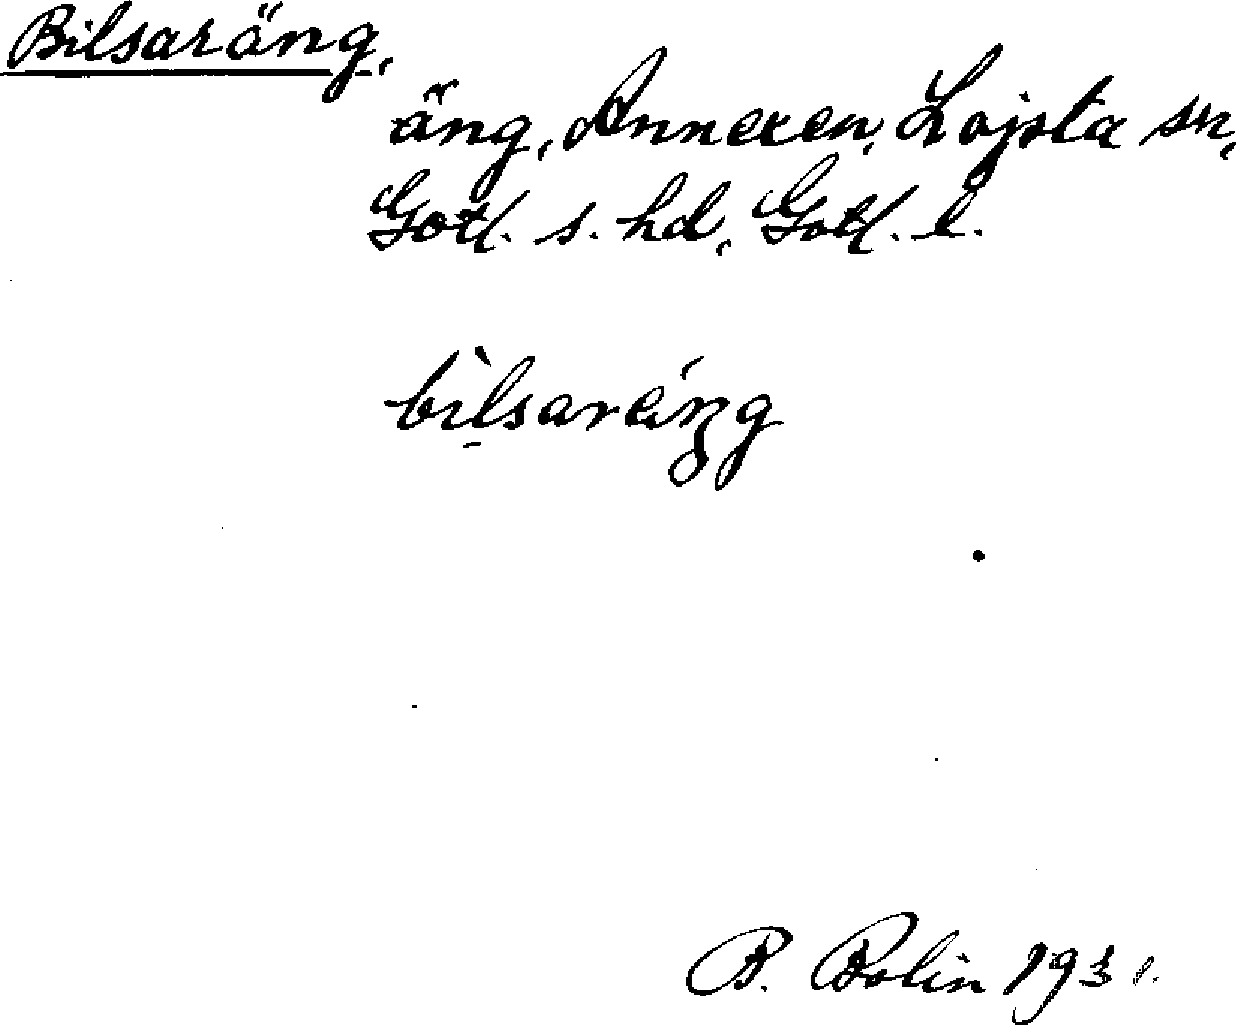 Bilsaräng,
äng, Annexen, Lojsta sn,
Gotl. s. hd, Gotl. l.
bìlsaráŋg
B. Bolin 1931.